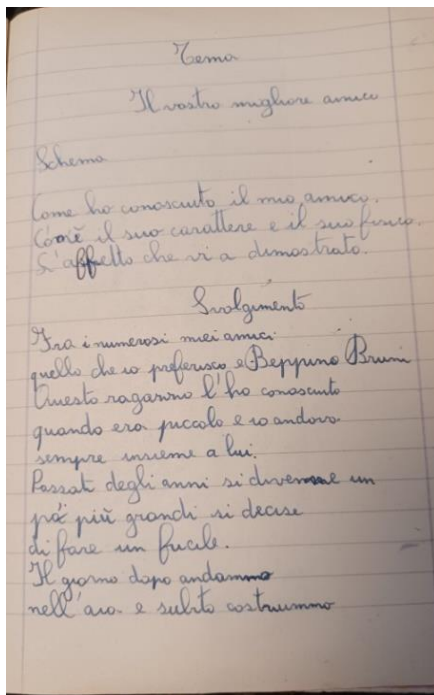 Tema
Il vostro migliore amico
Schema
Come ho conosciuto il mio amico.
Com'è il suo carattere e il suo fisico.
L'affetto che vi a dimostrato.
Svolgimento
Fra i numerosi miei amici
quello che io preferisco e Beppino Bruni
Questo ragazzino l'ho conosciuto
quando era piccolo e io andavo
sempre insieme a lui.
Passati degli anni si divenne un
pó più grandi si decise
di fare un fucile.
Il giorno dopo andammo
nell'aia e subito costruimmo